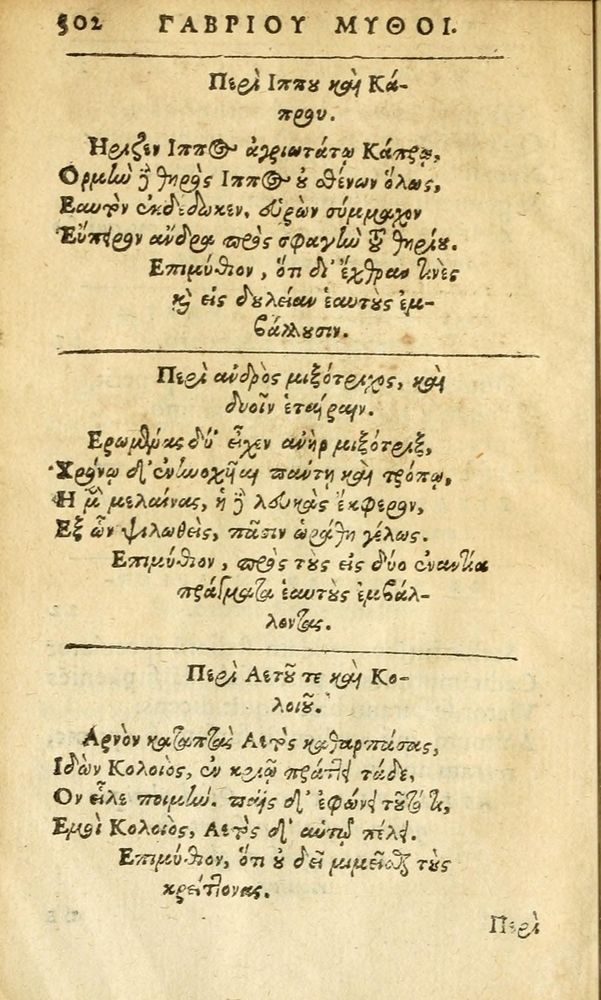 502 ΓΑΒΡΙΟΥ ΜΥΘΟΙ.
Περὶ Ιππου καὶ Κά-
πρου.
Ηριζεν Ιππος ἀγριωτάτῳ Κάπρῳ,
Ορμὴν δὲ θηρὸς Ιππος οὐ σθένων ὅλως,
Εαυτὸν ἐκδέδωκεν, εὑρὼν σύμμαχον
Εὔπειρον ἄνδρα πρὸς σφαγὴν τοῦ θηρίου.
Επιμύθιον, ὅτι δι' ἔχθραν τινὲς
καὶ εἰς δουλείαν ἑαυτοὺς ἐμ-
βάλλουσιν.
Περὶ ανδρὸς μιξότριχος, καὶ
δυοῖν ἑταίραιν.
Ερωμένας δύ' εἶχεν ανὴρ μιξότριξ,
Χρόνῳ δ' παύτῃ καὶ τρόπῳ,
Η μὲν μελαίνας, ἡ δὲ λευκὰς ἐκφερον,
Εξ ὧν ψιλωθεὶς, πᾶσιν ὡράθη γέλως.
Επιμύθιον, πρὸς τοὺς εἰς δύο ἐναντία
πράγματα ἑαυτοὺς ἐμβάλ-
λοντας.
Περὶ Αετοῦ τε καὶ Κο-
λοιοῦ.
Αρνὸν καταπτὰς Αετὸς καθαρπάσας,
Ιδὼν Κολοιὸς, ἐν κριῷ πράττει τάδε,
Ον εἷλε ποιμὴν. παῖς δ' ἐφώνει τοῦτό τι,
Εμοὶ Κολοιὸς, Αετὸς δ' αὑτῷ πέλει.
Επιμύθιον, ὅτι οὐ δεῖ μιμεῖσθαι τοὺς
κρείττονας.
Περὶ